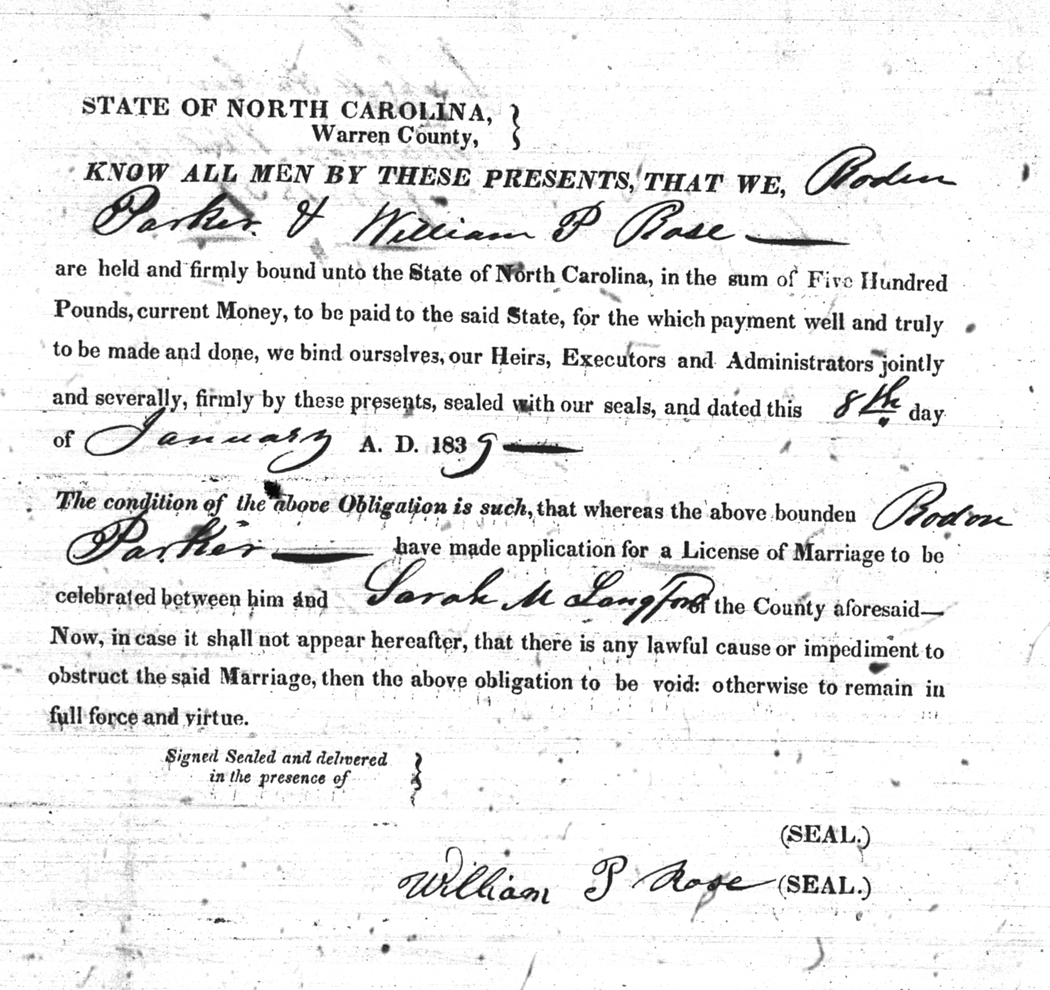 STATE OF NORTH CAROLINA,
Warren County,
KNOW ALL MEN BY THESE PRESENTS, THAT WE, Boden
Parker. & William P Rose
are held and firmly bound unto the State of North Carolina, in the sum of Five Hundred
Pounds, current Money, to be paid to the said State, for the which payment well and truly
to be made and done, we bind ourselves, our Heirs, Executors and Administrators jointly
and severally, firmly by these presents, sealed with our seals, and dated this 8th day
of January A. D. 1839
The condition of the above Obligation is such, that whereas the above bounden Bodon
Parker have made application for a License of Marriage to be
celebrated between him and Sarah M Langford of the County aforesaid—
Now, in case it shall not appear hereafter, that there is any lawful cause or impediment to
obstruct the said Marriage, then the above obligation to be void: otherwise to remain in
full force and virtue.
Signed Sealed and delivered
in the presence of
(SEAL.)
William P Rose (SEAL.)